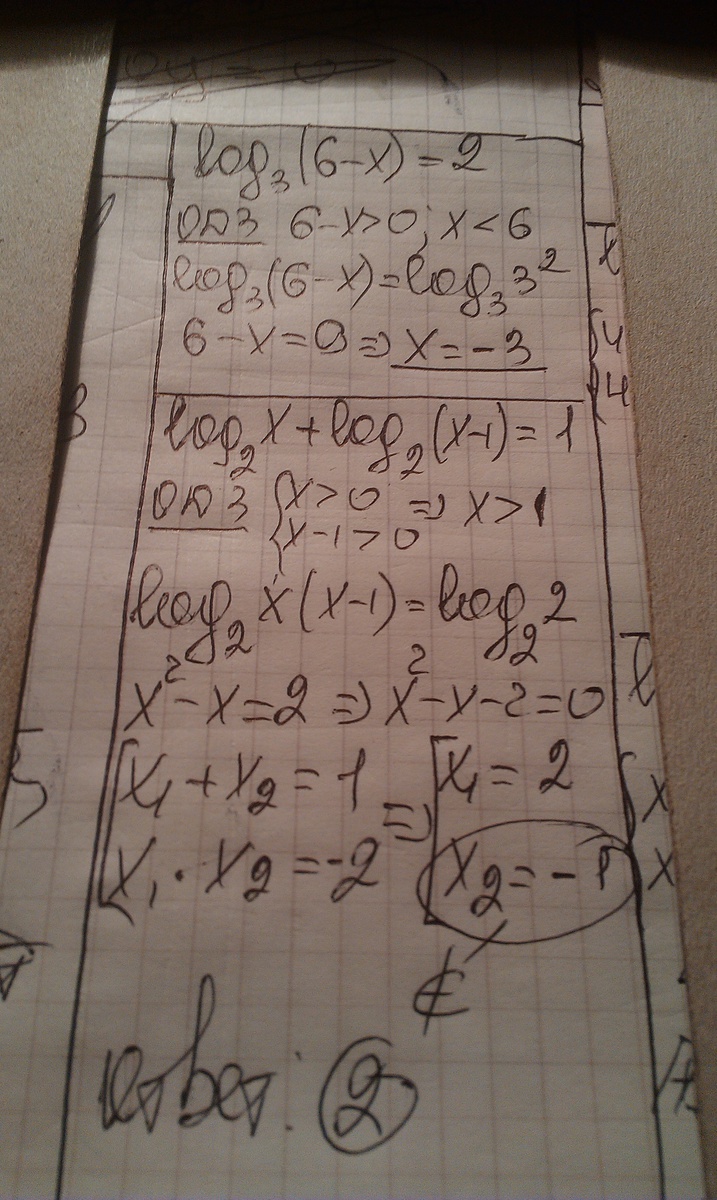 log₃(6-x)=2
ОДЗ 6-x>0; x<6
log₃(6-x)=log₃3²
6-x=9⇒x=-3
log₂x+log₂(x-1)=1
ОДЗ {x>0 ⇒ x>1
x-1>0
log₂x(x-1)=log₂2
x²-x=2⇒x²-x-2=0
[x₁+x₂=1 ⇒ [x₁=2
x₁·x₂=-2 x₂=-1
∉
Ответ: 2